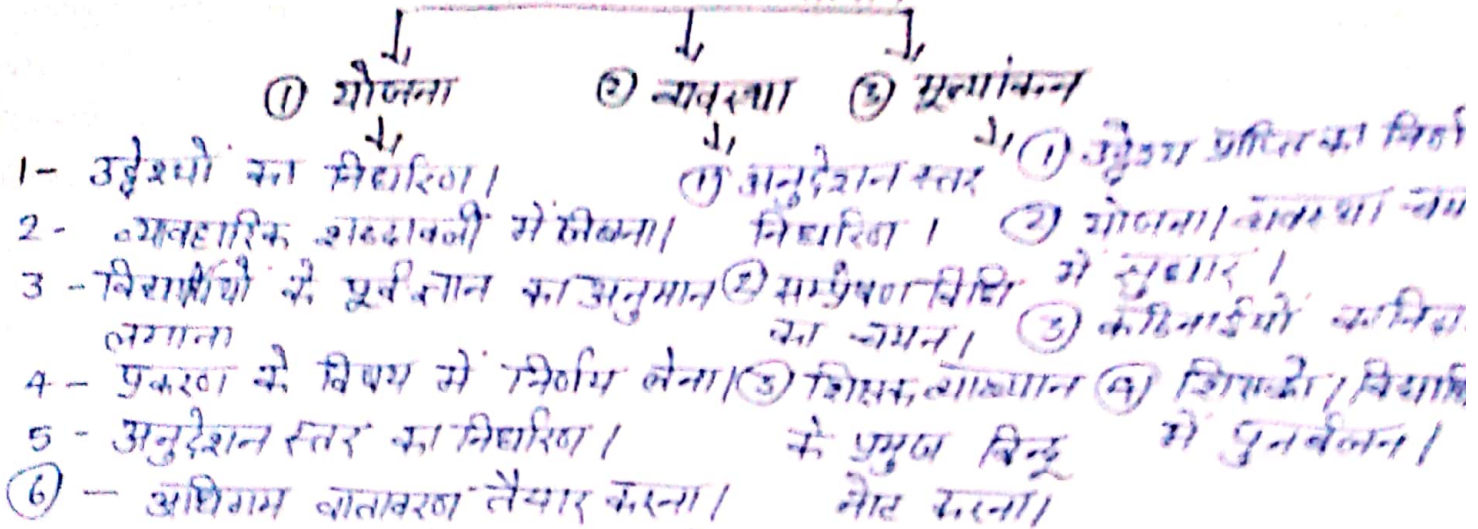 ① योजना ② व्यवस्था ③ मूल्यांकन
1- उद्देश्यों का निर्धारण।
2- व्यवहारिक शब्दावली में लिखना।
3 - विद्यार्थीयों के पूर्व ज्ञान का अनुमान
लगाना
4 - प्रकरण के विषय में निर्णय लेना।
5 - अनुदेशन स्तर का निर्धारण।
⑥ - अधिगम वातावरण तैयार करना।
① अनुदेशन स्तर
निर्धारण।
② सम्प्रेषण विधि
का चयन।
③ शिक्षक व्याख्यान
के प्रमुख बिन्दू
नोट करना।
① उद्देश्य प्राप्ति का
② योजना। व्यवस्था
में सुधार।
③ कठिनाईयों का
④ शिक्षको।
में पुनर्बलन।